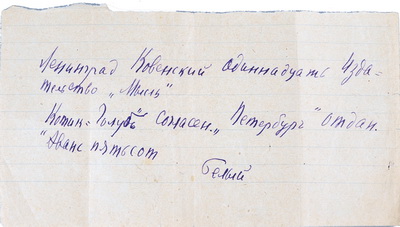 Ленинград Ковенский одиннадцать Изда=
тельство „Мысль"
Котик=Голубь согласен. „Петербург" отдан.
"Аванс пятьсот
Белый